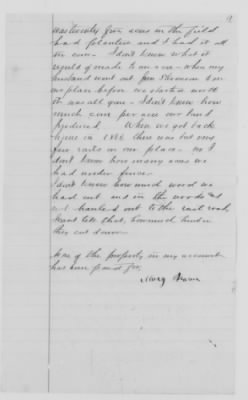 was twenty five acres in the field
had planted and I had it all
the corn - I don't know what it
would of made to an acre - when my
husband went out from Thomson to
our place before we started north
it was all gone - I don't know how
much corn per acre our land
produced. When we got back
home in 1866 there was but very
few rails on our place - no I
don't know how many acres we
had under fence.
I don't know how much wood we
had cut and in the woods &
not hauled out to the rail road,
I cant tell that, how much timber
they cut down.
None of the property in my account
has been paid for,
Mary